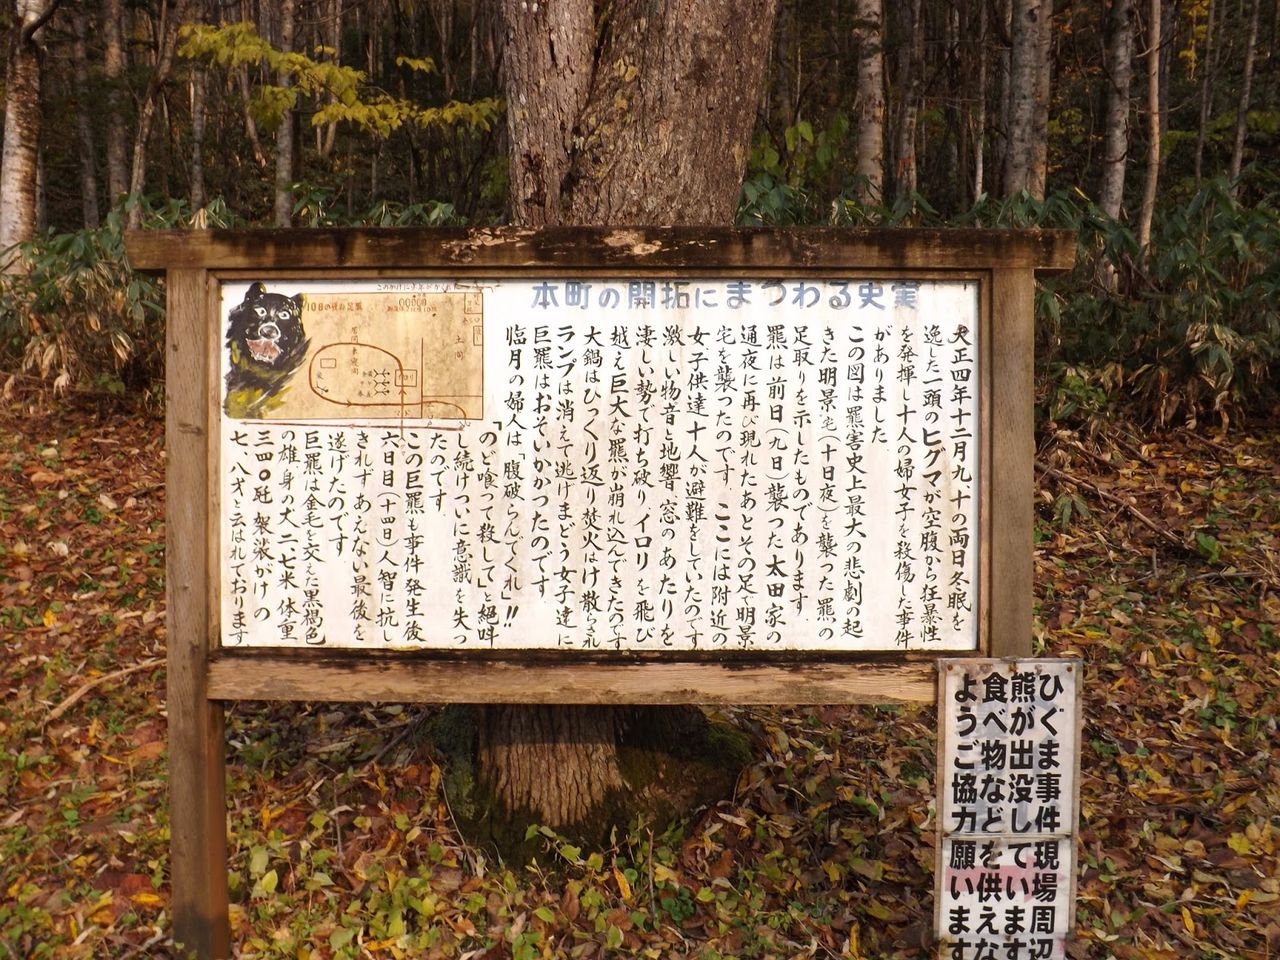 本町の開拓にまつわる史実
大正四年十二月九十の両日冬眠を
逸した一頭のヒグマが空腹から狂暴性
を発揮し十人の婦女子を殺傷した事件
がありました
この図は羆害史上最大の悲劇の起
きた明景宅(十日夜)を襲った羆の
足取りを示したものであります
羆は前日(九日)襲った太田家の
通夜に再び現れたあとその足で明景
宅を襲ったのです ここには附近の
女子供達十人が避難をしていたのです
激しい物音と地響、窓のあたりを
凄しい勢で打ち破り、イロリを飛び
越え巨大な羆が崩れ込んできたのです
大鍋はひっくり返り焚火はけ散らされ
ランプは消えて逃げまどう女子達に
巨羆はおそいかかったのです
臨月の婦人は「腹破らんでくれ」!!
「のど喰って殺して」と絶叫
し続けついに意識を失っ
たのです
この巨羆も事件発生後
六日目(十四日)人智に抗し
きれず あえない最後を
遂げたのです
巨羆は金毛を交えた黒褐色
の雄身の丈二、七米 体重
三四〇瓩 袈裟がけの
七、八才と云はれております
土間
居間
ひぐま事件現場周辺
熊が出没しています
食べ物などを供えな
ようご協力願います